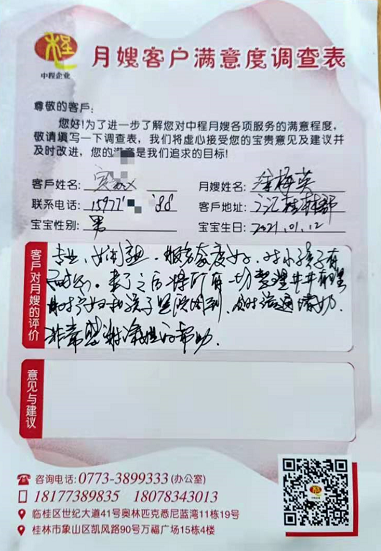 程
中程企业
月嫂客户满意度调查表
尊敬的客户:
您好!为了进一步了解您对中程月嫂各项服务的满意程度,
敬请填写一下调查表、我们将虚心接受您的宝贵意见及建议并
及时改进,您的满意是我们追求的目标!
客户姓名: 月嫂姓名: 梅英
联系电话: 15977 88 客户地址:
宝宝性别: 男 宝宝生日: 2021.01.12
客户对月嫂的评价
专业、服务态度好、对小孩子有
耐心。 之后将所有一切整理井井有
对产妇和孩子照顾周到,
非常感谢 的帮助.
意见与建议
咨询电话: 0773-3899333 (办公室)
18177389835 18078343013
临桂区世纪大道41号奥林匹克悉尼蓝湾11栋19号
桂林市象山区凯风路90号万福广场15栋4楼